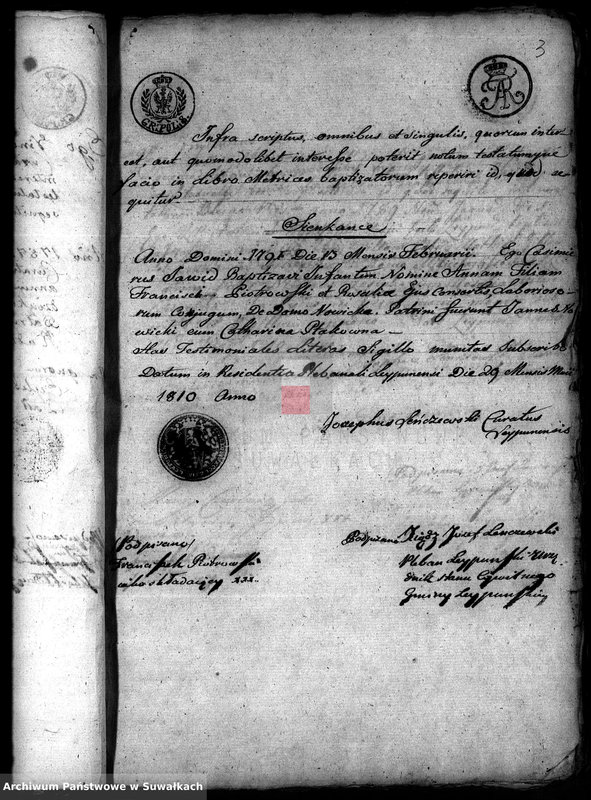 3
GR: POLIS:
Infra scriptus, omnibus et singulis, quorum inter
est, aut quomodolibet interesse poterit notum testatumque
facio in Libro Metrices baptizatorum reperiri id, quod se
quitur
Sienkance
Anno Domini 179 Die 13 Mensis Februarii. Ego Casimi
rus Jawid Baptizavi Infantem Nomine Annam Filiam
Francisci Piotrowski et Rosaliæ Ejus Consortis, Laborioso
rum Conjugum, De Domo Nowicka. Patrini fuerunt Joannes No
wicki cum Catharina Ptakowna —
Has Testimoniales Literas Sigillo munitas Subscribo
Datum in Residentia Plebanali Leypunensi Die 29 Mensis Maii
1810 Anno
Josephus Leńczewski Curatus
Leypunensis
(Podpisano)
Franciszek Piotrowski
składaiący xxx
Podpisano Xiądz Jozef Lenczewski
Pleban Leypunski Urzę
dnik stanu Cywilnego
Gminy Leypunskiey
Archiwum Państwowe w Suwałkach